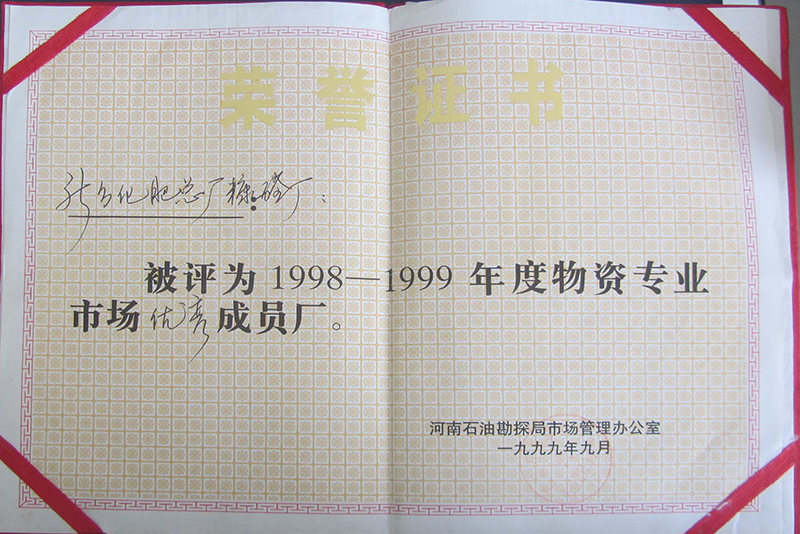 荣誉证书
新乡化肥总厂糠醛厂：
被评为1998—1999年度物资专业
市场优秀成员厂。
河南石油勘探局市场管理办公室
一九九九年九月